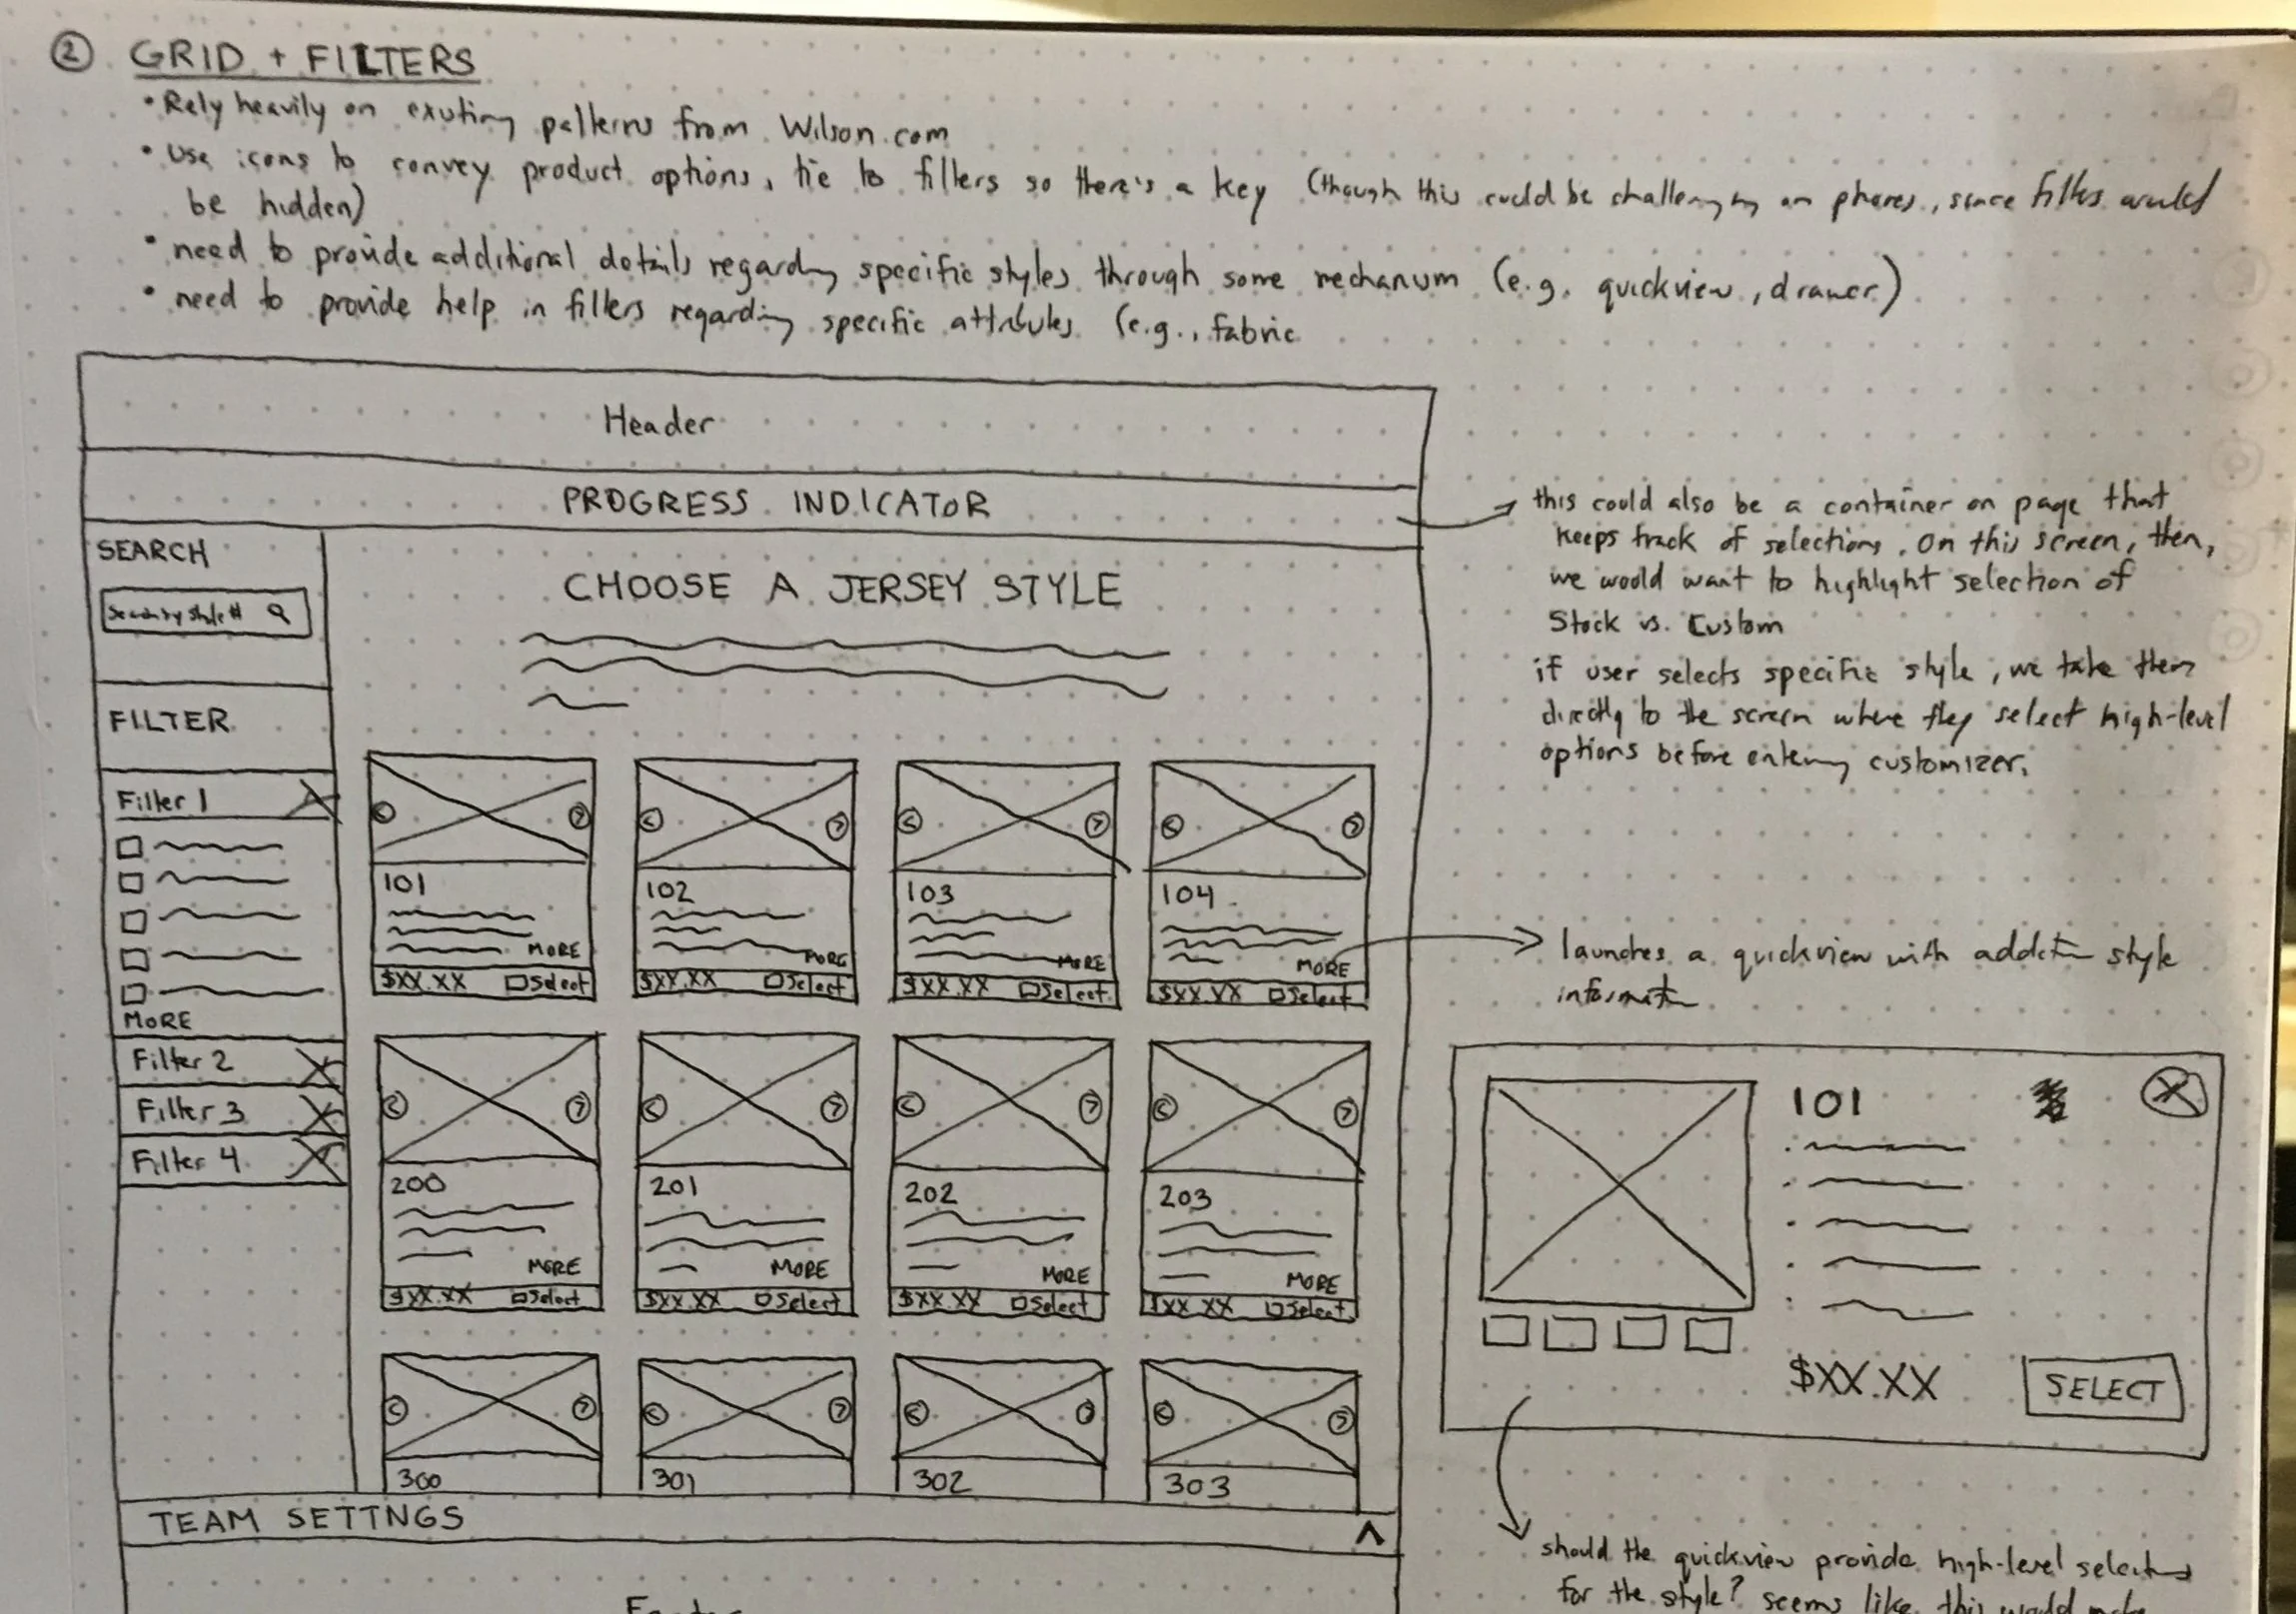 ② GRID + FILTERS
• Rely heavily on existing patterns from Wilson.com
• Use icons to convey product options, tie to filters so there's a key (though this could be challenging on phones, since filters would
be hidden)
• need to provide additional details regarding specific styles through some mechanism (e.g. quickview, drawer)
• need to provide help in filters regarding specific attributes (e.g., fabric
Header
PROGRESS INDICATOR
this could also be a container on page that
keeps track of selections. On this screen, then,
we would want to highlight selection of
Stock vs. Custom
if user selects specific style, we take them
directly to the screen where they select high-level
options before entering customizer.
SEARCH
Search by style #
FILTER
Filter 1
MORE
Filter 2
Filter 3
Filter 4
CHOOSE A JERSEY STYLE
101
MORE
$XX.XX Select
102
MORE
$XX.XX Select
103
MORE
$XX.XX Select
104
MORE
$XX.XX Select
launches a quickview with addition style
information
200
MORE
$XX.XX Select
201
MORE
$XX.XX Select
202
MORE
$XX.XX Select
203
MORE
$XX.XX Select
300
301
302
303
101
$XX.XX
SELECT
TEAM SETTNGS
should the quickview provide high-level selections
for the style? seems like this would make
Footer